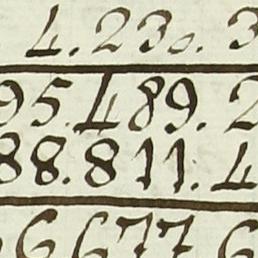 4.230.3
95.489.2
88.811.4
6677 6